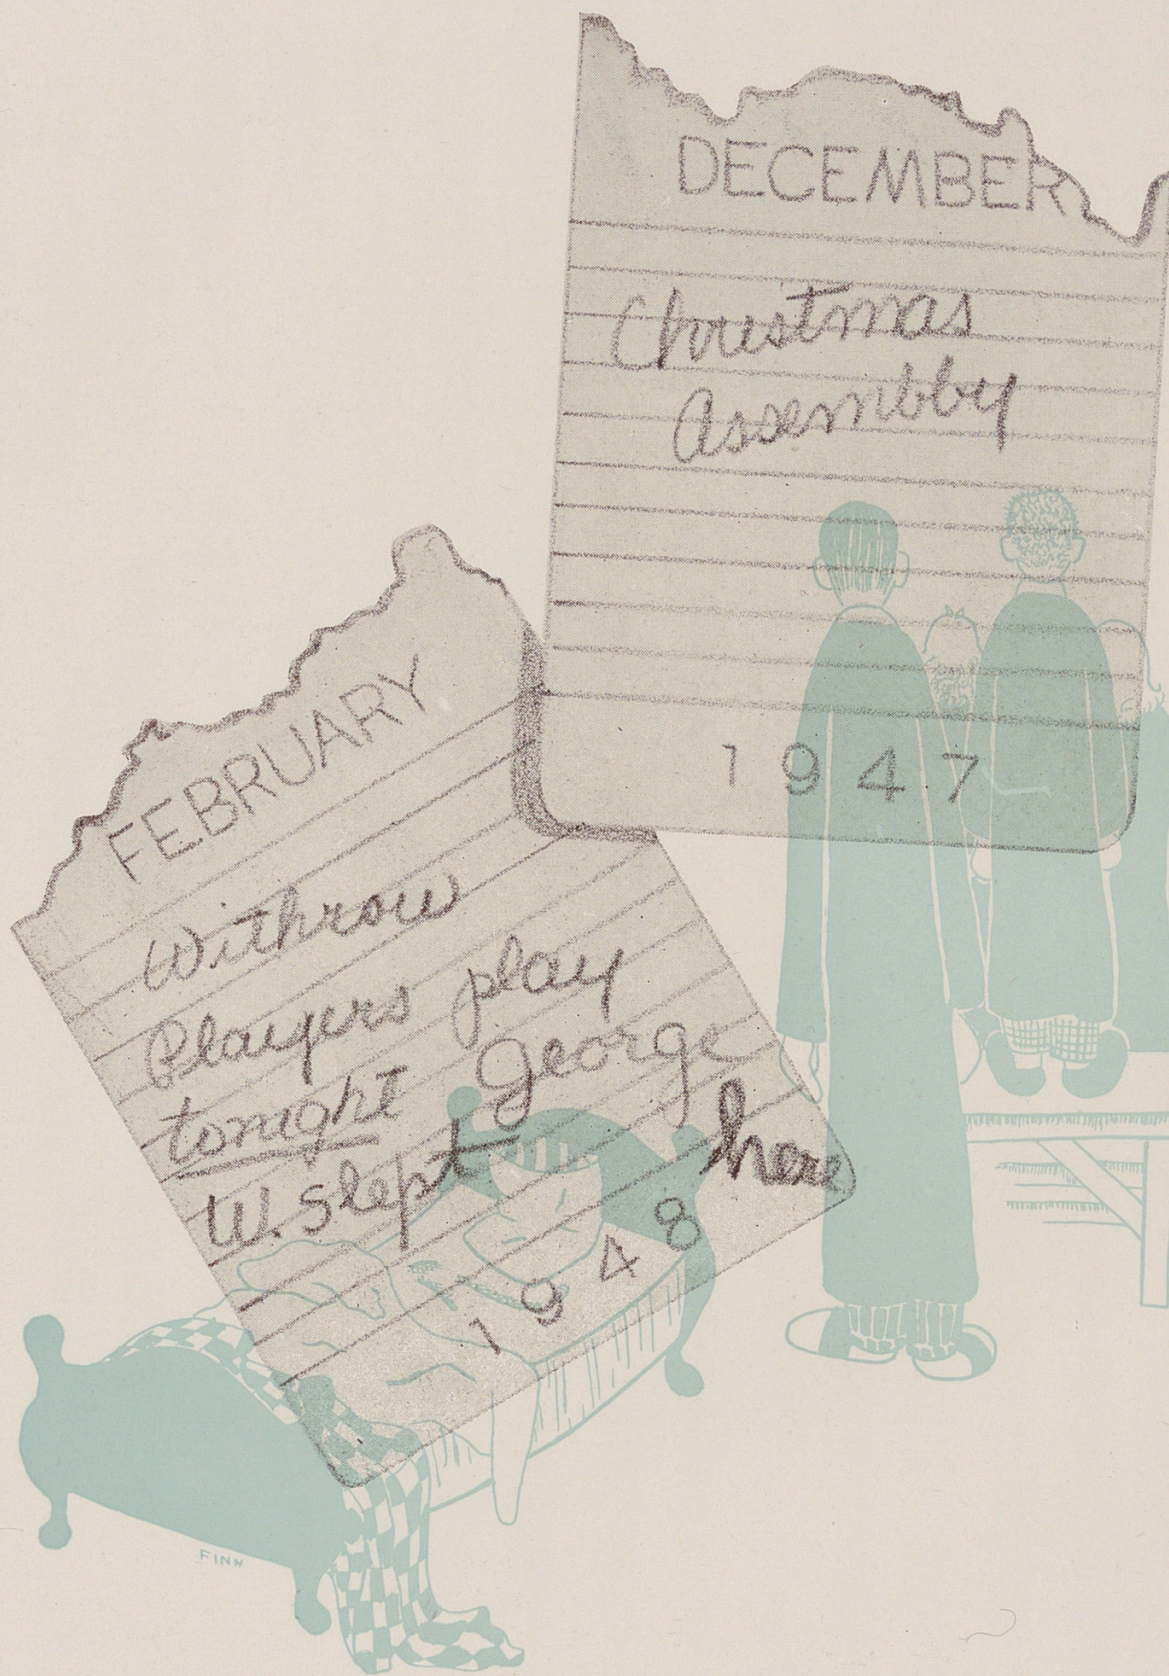 DECEMBER
Christmas
Assembly
1947
FEBRUARY
Withrow
Players play
tonight George
W. Slept here
1948
FINN